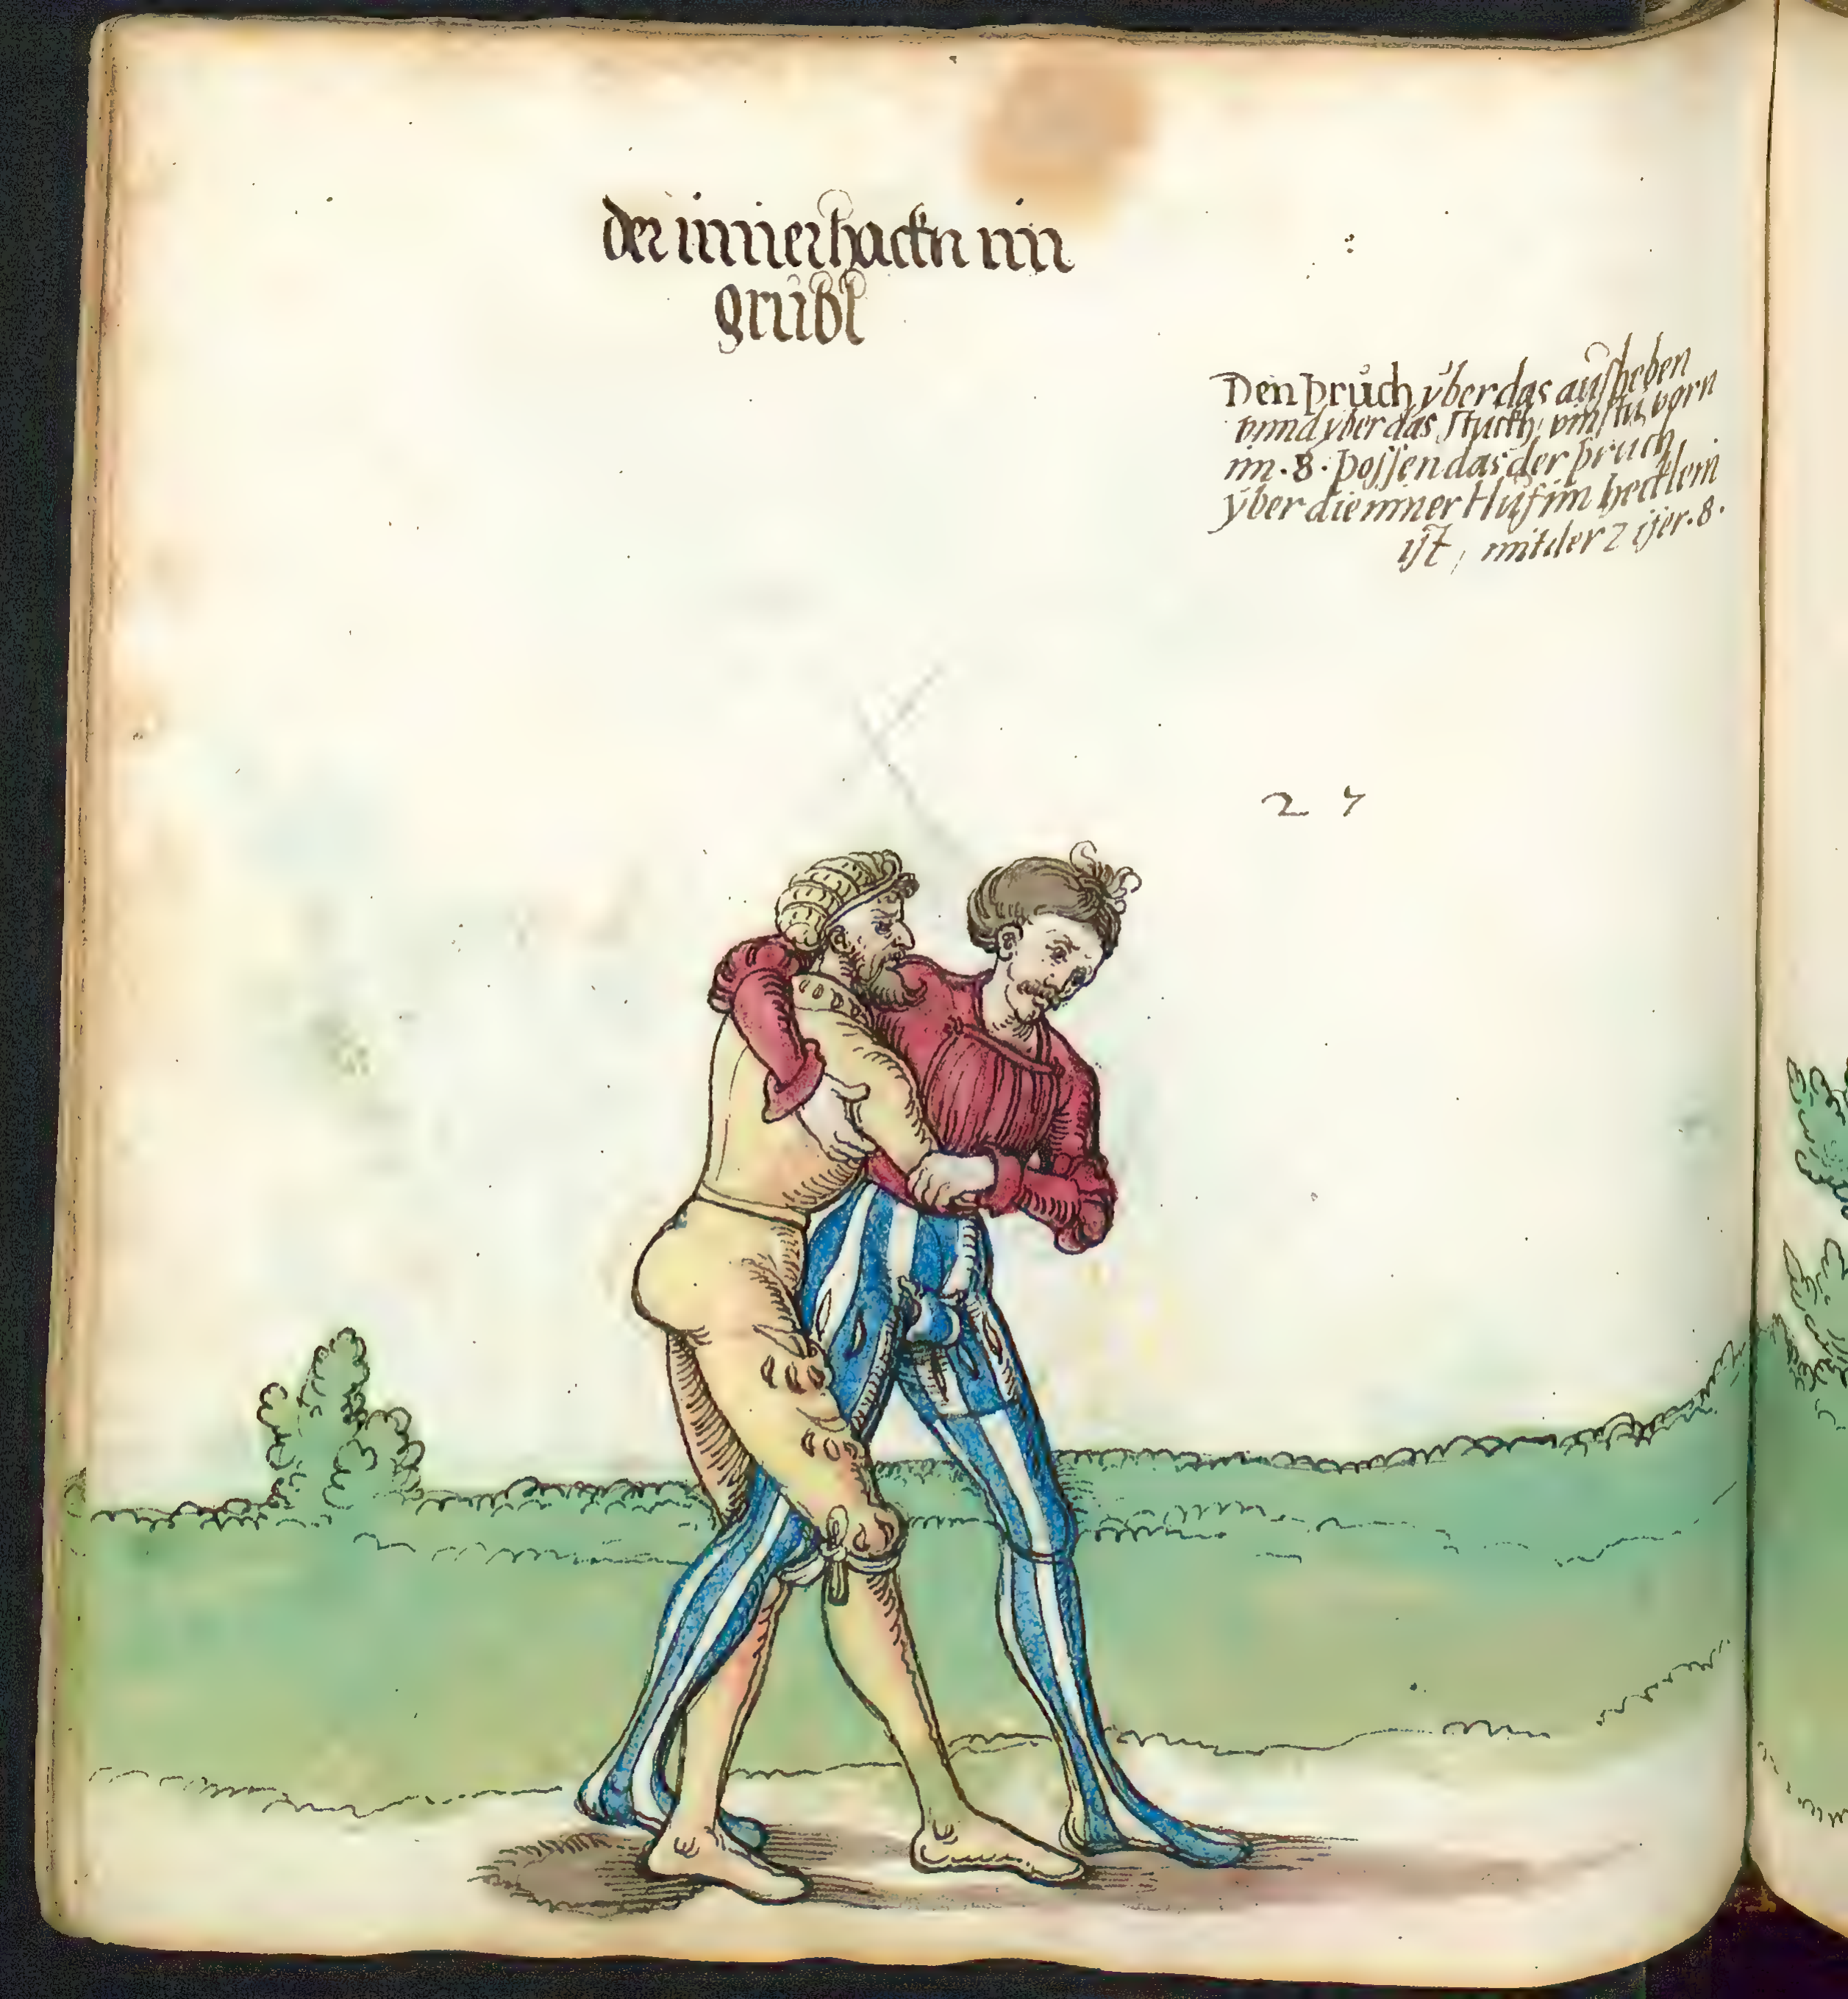 der innerhackn im
grübl
Den pruch yber das ausheben
vnnd yber das stuckh, vinstu vorn
im . 8 . possen das der pruch
yber die inner Huf im hecklein
ist, mit der Zijer . 8 .
2 7